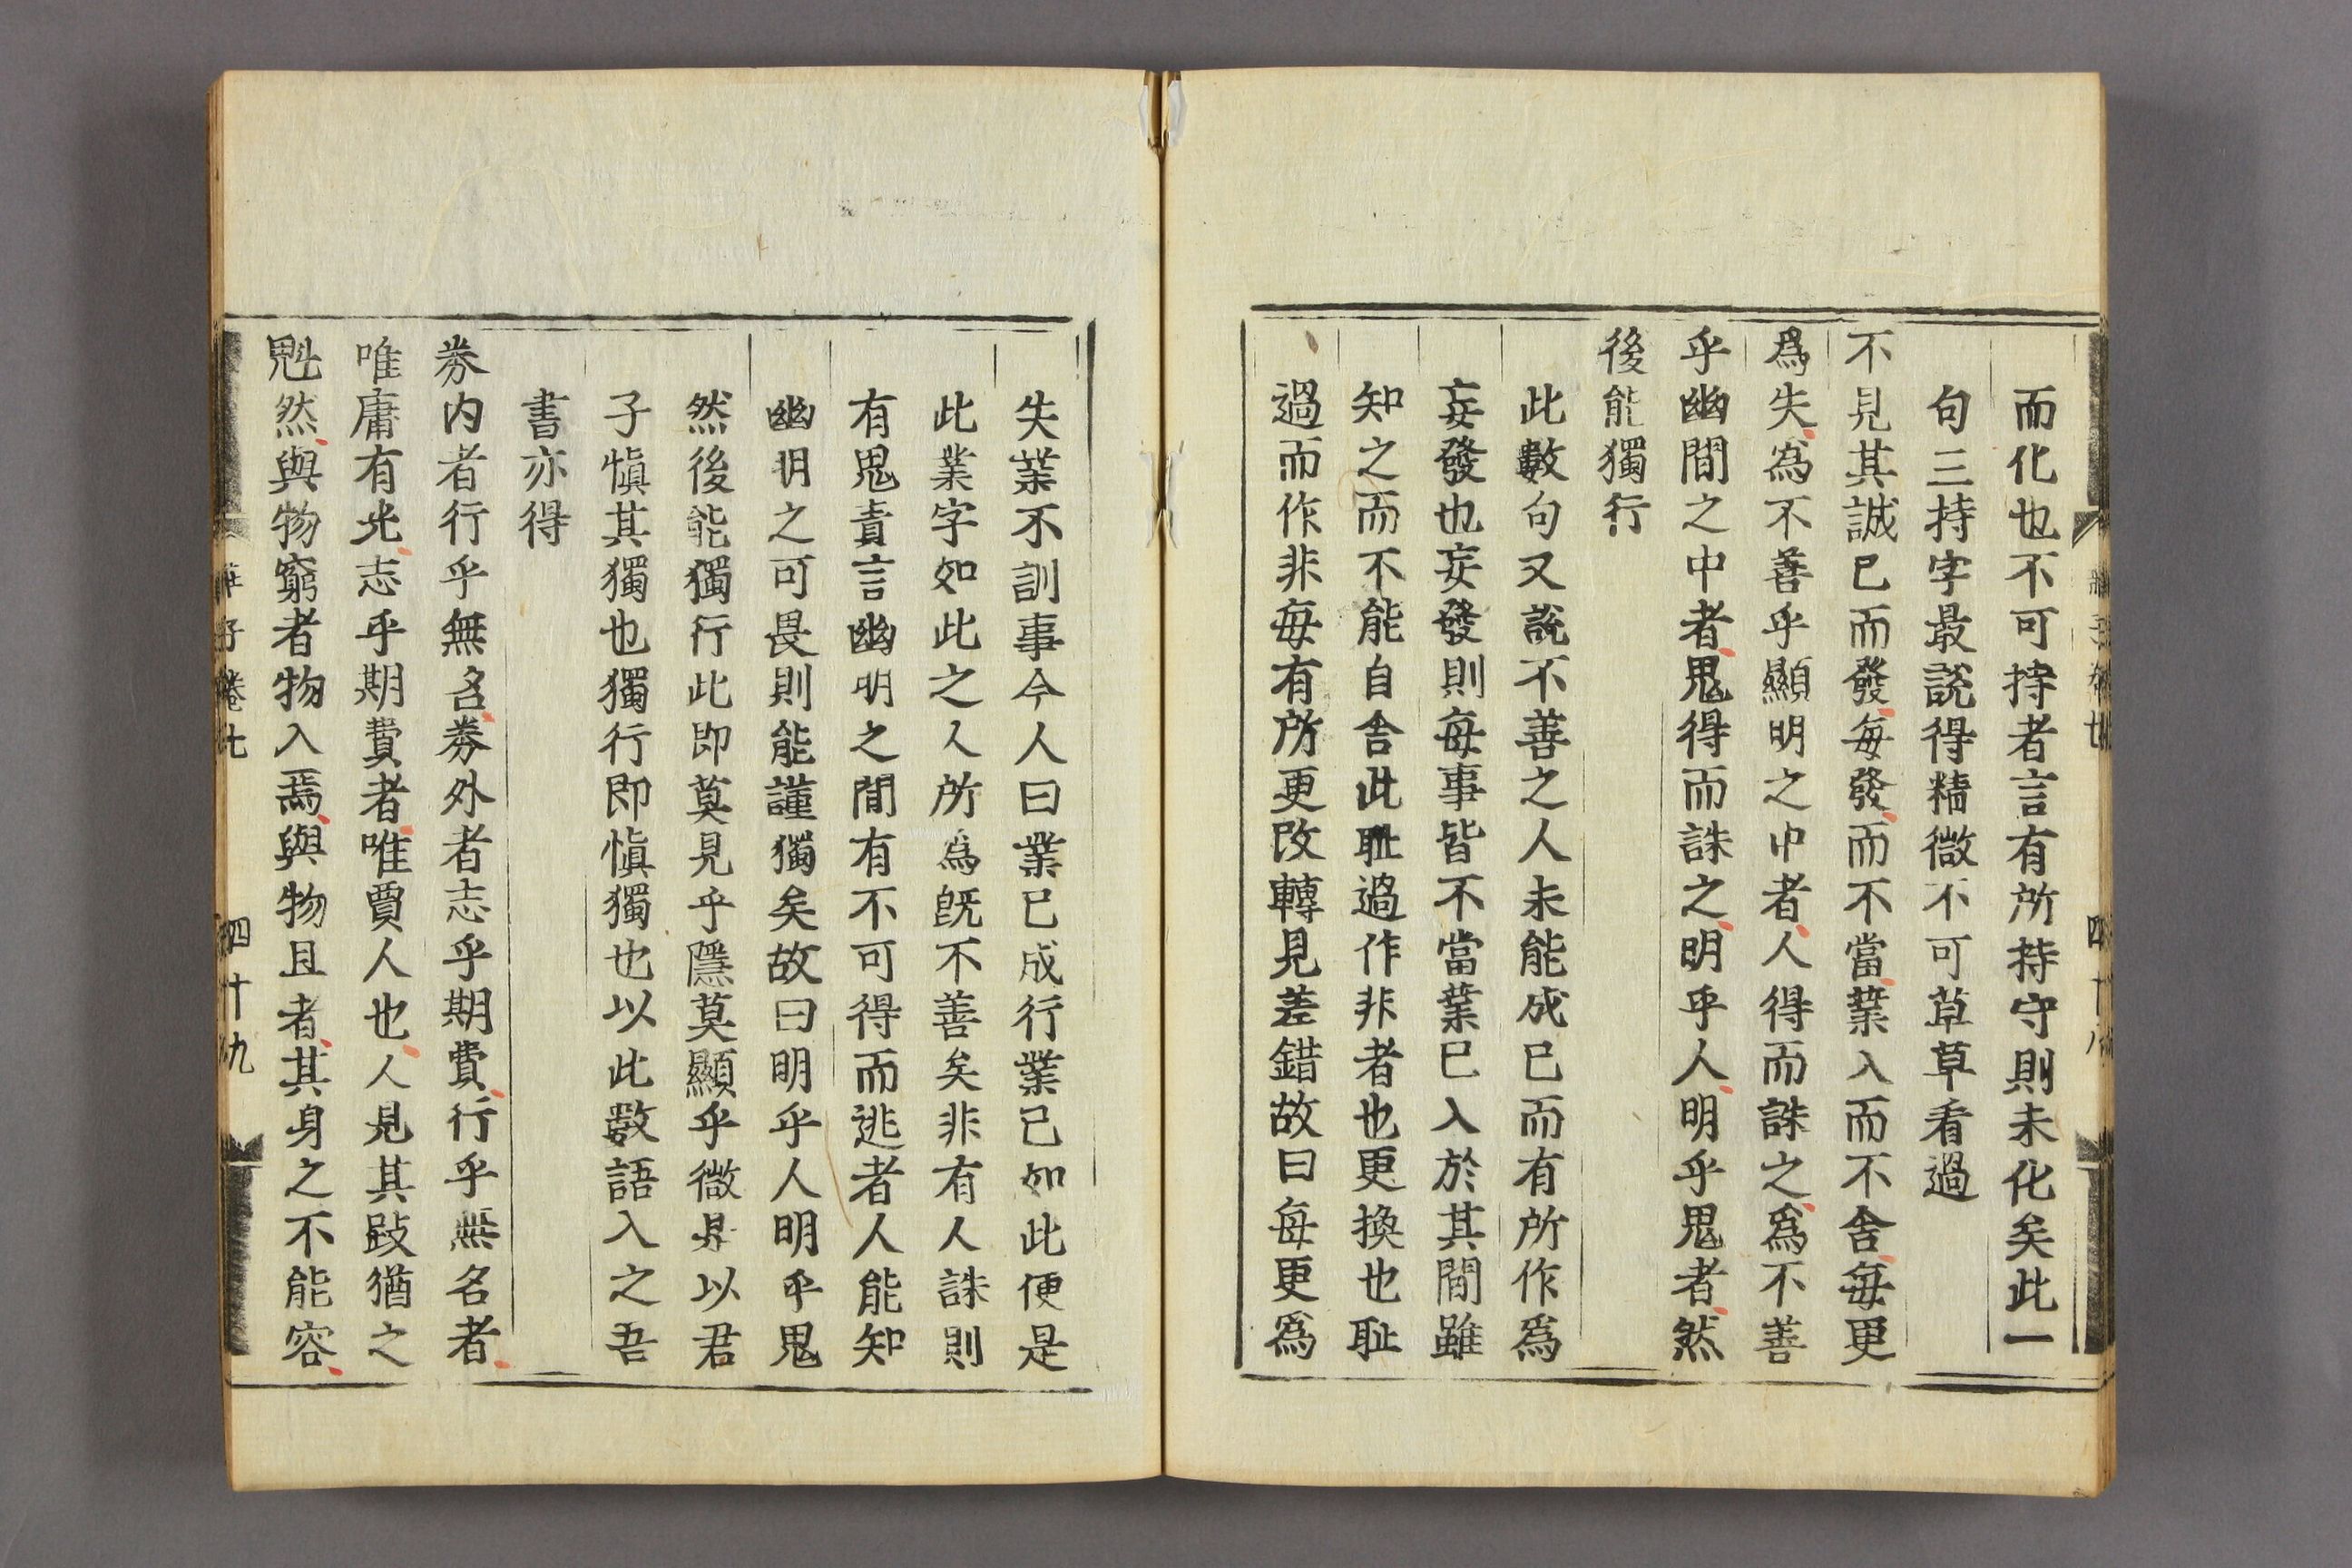 而化也不可持者言有所持守則未化矣此一
句三持字最說得精微不可草草看過
不見其誠已而發每發而不當業入而不舍每更
爲失爲不善乎顯明之中者人得而誅之爲不善
乎幽間之中者鬼得而誅之明乎人明乎鬼者然
後能獨行
此數句又說不善之人未能成已而有所作爲
妄發也妄發則每事皆不當業已入於其間雖
知之而不能自舍此耻過作非者也更換也耻
過而作非每有所更改轉見差錯故曰每更爲
失業不訓事今人曰業已成行業已如此便是
此業字如此之人所爲旣不善矣非有人誅則
有鬼責言幽明之間有不可得而逃者人能知
幽明之可畏則能謹獨矣故曰明乎人明乎鬼
然後能獨行此即莫見乎隱莫顯乎微是以君
子愼其獨也獨行即愼獨也以此數語入之吾
書亦得
券内者行乎無名券外者志乎期費行乎無名者
唯庸有光志乎期費者唯賈人也人見其跂猶之
魁然與物窮者物入焉與物且者其身之不能容
莊子卷七
四十九